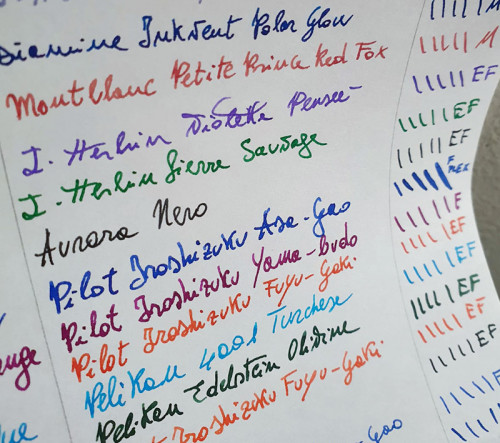 Diamine Inkvent Polar Glow M
Montblanc Petite Prince Red Fox M
J. Herbin Violette Pensée EF
J. Herbin Lierre Sauvage EF
Aurora Nero EF
Pilot Iroshizuku Asa-Gao F
Pilot Iroshizuku Yama-budo F
Pilot Iroshizuku Fuyu-Gaki EF
Pelikan 4001 Turchese EF
Pelikan Edelstein Olidine EF
Iroshizuku Fuyu-Gaki EF
Gao EF